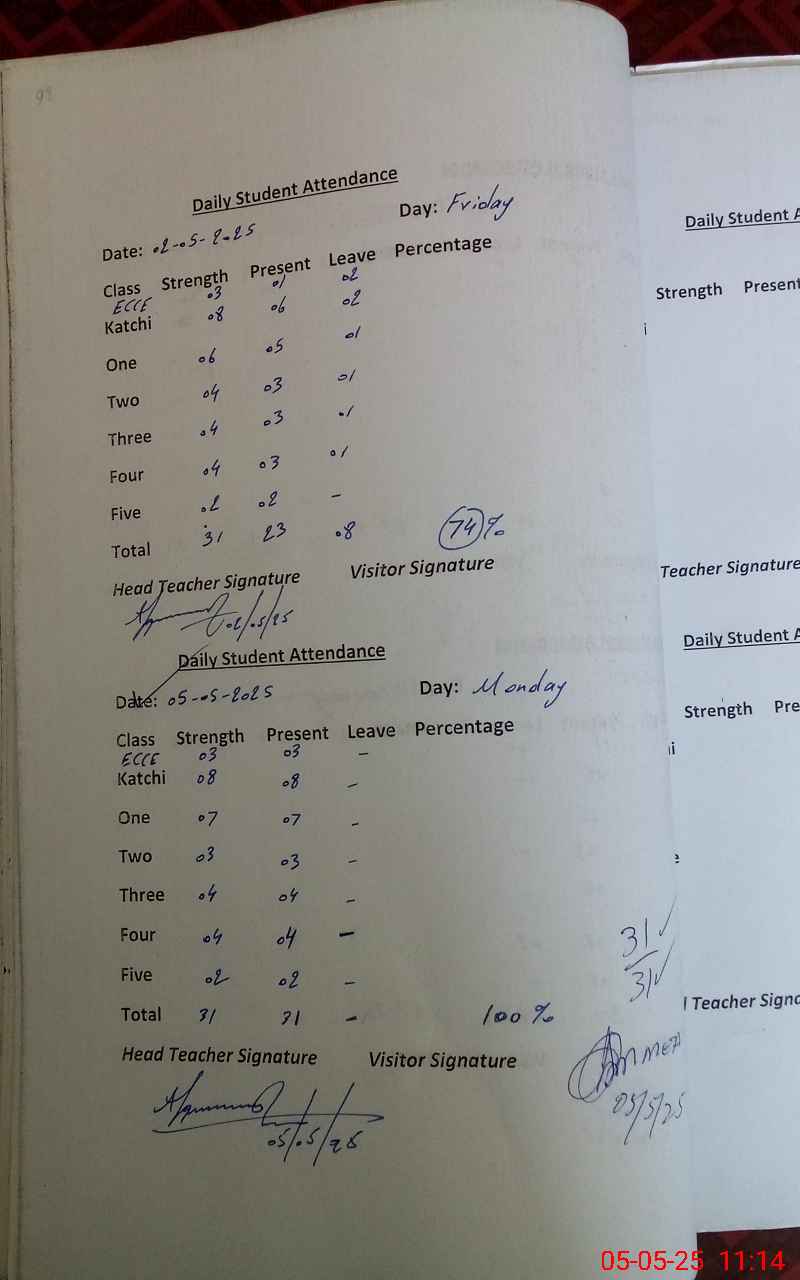 92
Daily Student Attendance
Date: 02-05-2025 Day: Friday
Class Strength Present Leave Percentage
ECCE 03 01 02
Katchi 08 06 02
One 06 05 01
Two 04 03 01
Three 04 03 01
Four 04 03 01
Five 02 02 -
Total 31 23 08 74%
Head Teacher Signature Visitor Signature
02/05/25
Daily Student Attendance
Date: 05-05-2025 Day: Monday
Class Strength Present Leave Percentage
ECCE 03 03 -
Katchi 08 08 -
One 07 07 -
Two 03 03 -
Three 04 04 -
Four 04 04 -
Five 02 02 -
Total 31 31 - 100%
31
31
Head Teacher Signature Visitor Signature
05/05/25
05/5/25
Daily Student A
Strength Present
i
Teacher Signature
Daily Student A
Strength Pre
i
e
l Teacher Signa
05-05-25 11:14